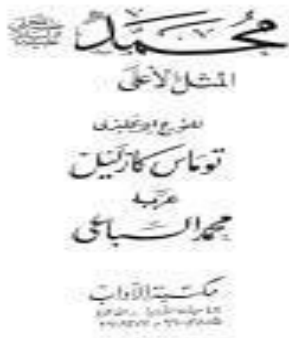 محمد
المثل الأعلى
للمؤرخ الإنجليزى
توماس كارليل
عربه
محمد السباعى
مكتبة الآداب